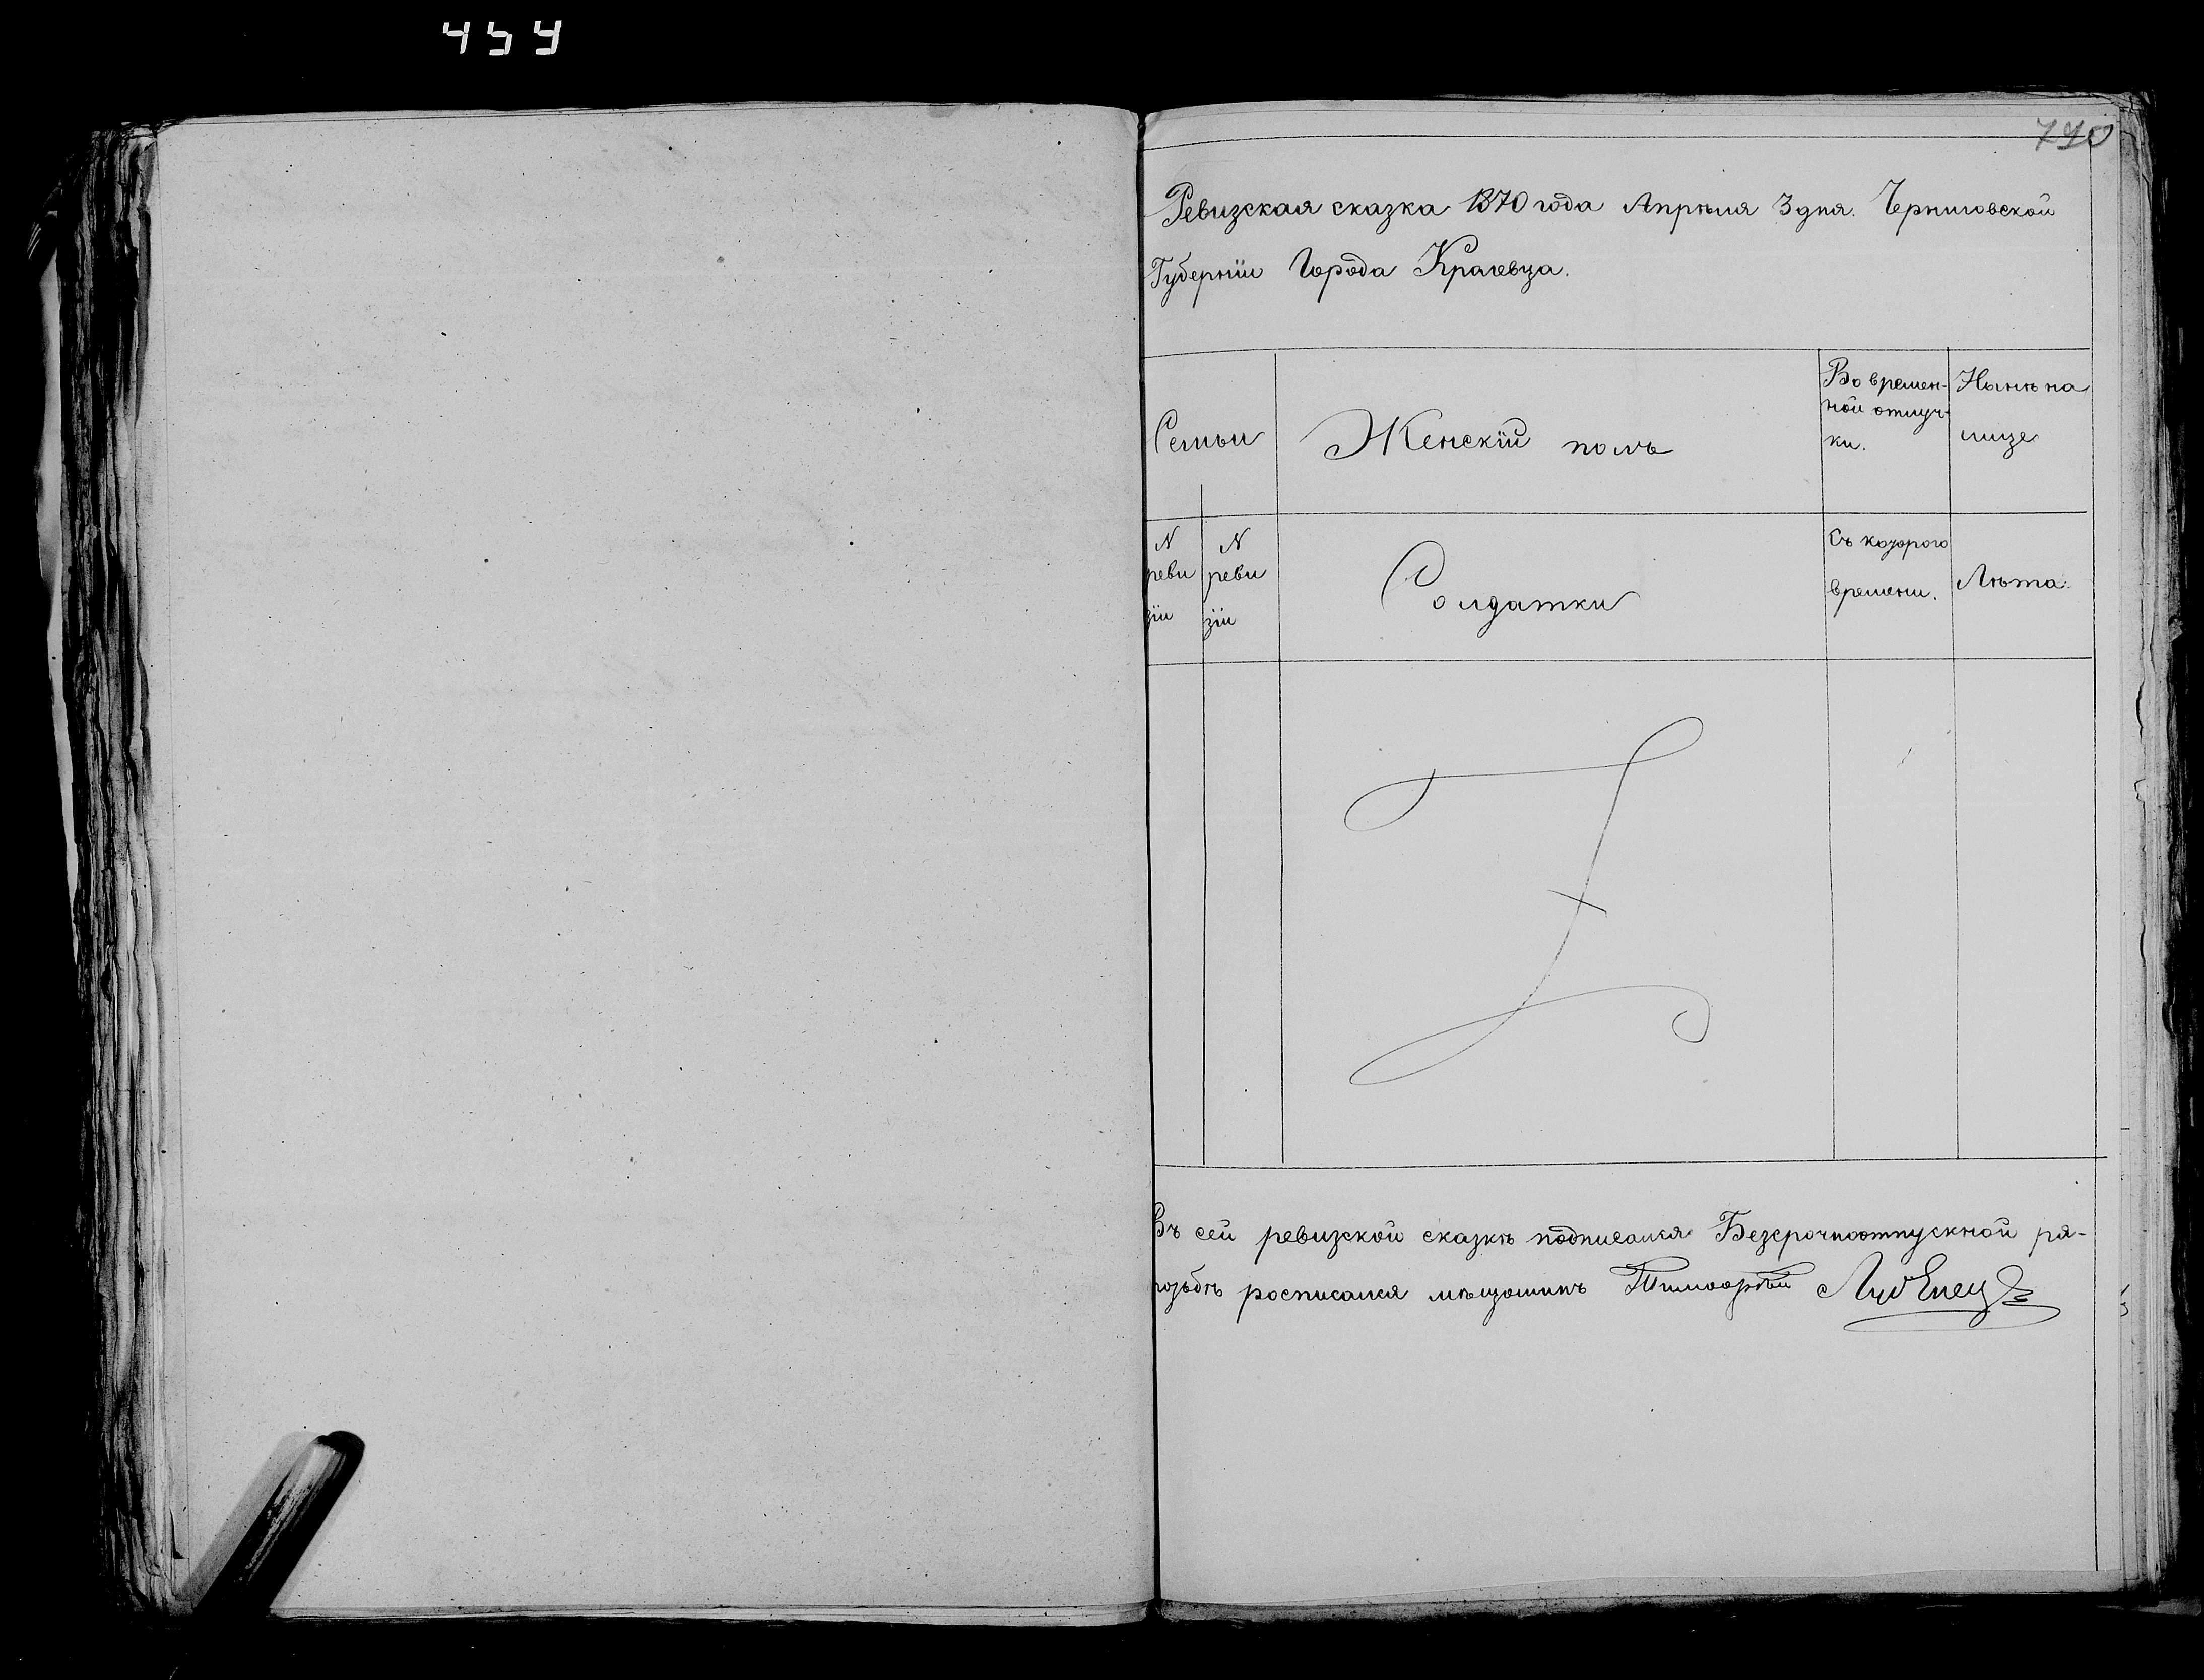 790
Ревизская сказка 1870 года Апрѣля 3 дня. Черниговской
Губерніи Города Кролевца.
Семьи
Женскій полъ
Во времен-
ной отлуч-
ки.
Нынѣ на
лице
N
реви
зіи
N
реви
зіи
Солдатки
Съ которого
времени.
Лѣта.
Въ сей ревизской сказкѣ подписался Безсрочноотпускной ря-
росписался мѣщанинъ Тимофѣй